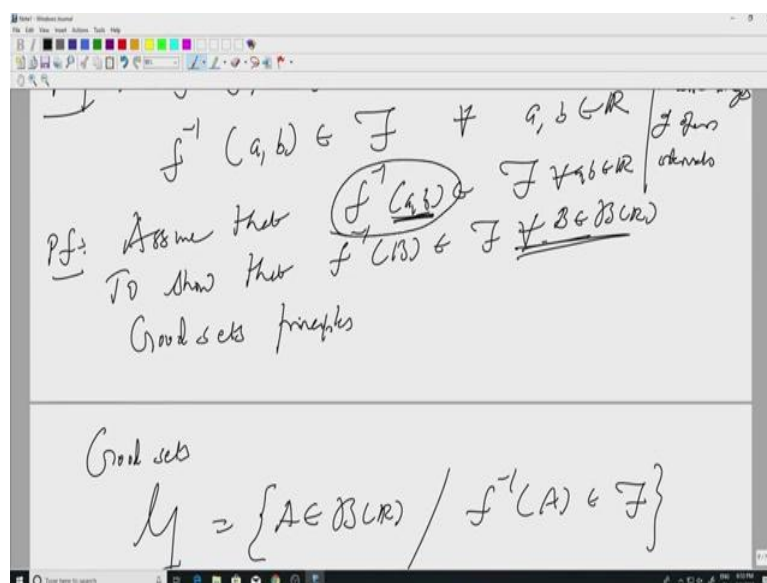 Note1 - Windows Journal
File Edit View Insert Actions Tools Help
f⁻¹ (a, b) ∈ ℱ ∀ a, b ∈ ℝ
of open
intervals
Pf: Assume that f⁻¹ (a, b) ∈ ℱ ∀ a, b ∈ ℝ
To show that f⁻¹(B) ∈ ℱ ∀ B ∈ ℬ(ℝ)
Good sets principles
Good sets
𝒢 = {A ∈ ℬ(ℝ) / f⁻¹(A) ∈ ℱ}
Type here to search